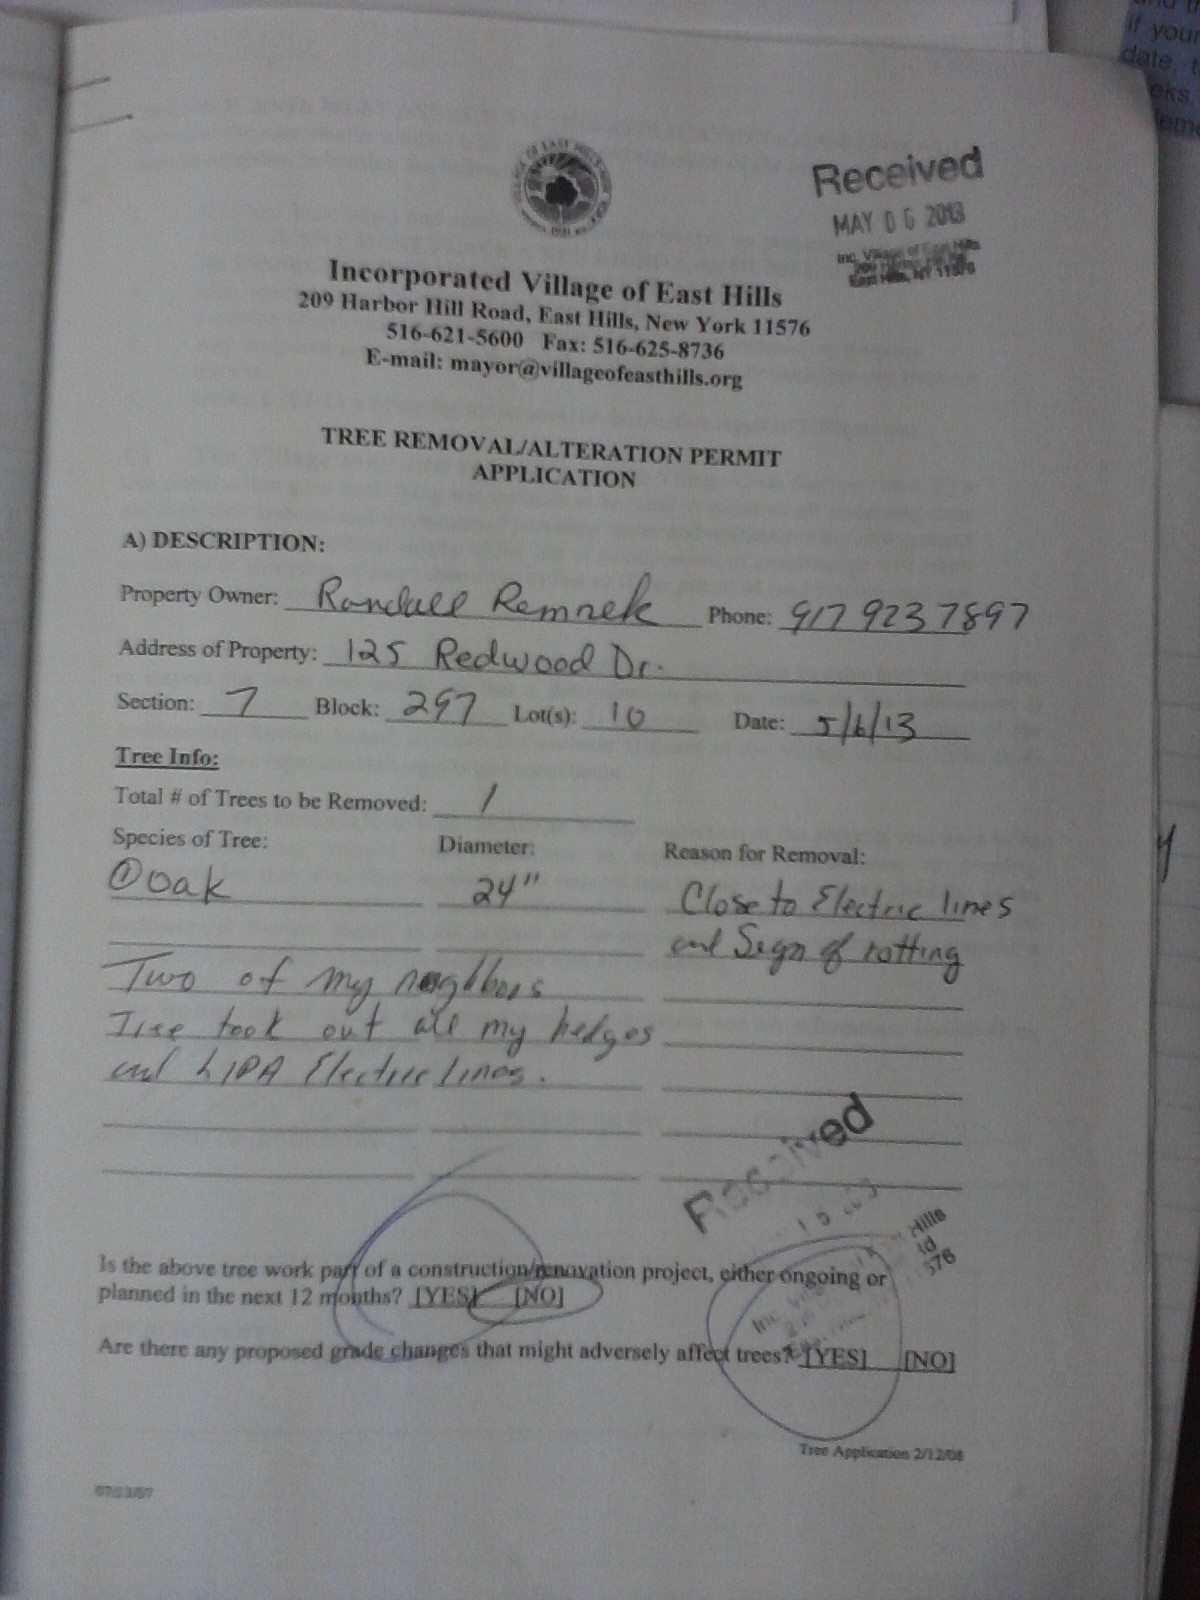 if your
date, t
eks.
Received
MAY 06 2013
Inc. Village of East Hills
East Hills, NY 11576
Incorporated Village of East Hills
209 Harbor Hill Road, East Hills, New York 11576
516-621-5600 Fax: 516-625-8736
E-mail: mayor@villageofeasthills.org
TREE REMOVAL/ALTERATION PERMIT
APPLICATION
A) DESCRIPTION:
Property Owner: Randall Remnek Phone: 917 923 7897
Address of Property: 125 Redwood Dr.
Section: 7 Block: 297 Lot(s): 10 Date: 5/6/13
Tree Info:
Total # of Trees to be Removed: 1
Species of Tree: Diameter: Reason for Removal:
① oak 24" Close to Electric lines
and Sign of rotting
Two of my neighbors
Tree took out all my hedges
and LIPA Electric lines.
Received
Hills
576
Is the above tree work part of a construction/renovation project, either ongoing or
planned in the next 12 months? [YES] [NO]
Are there any proposed grade changes that might adversely affect trees? [YES] [NO]
Tree Application 2/12/08